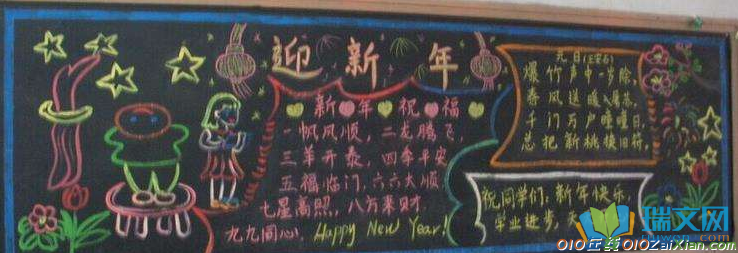 迎新年
新年祝福
一帆风顺，二龙腾飞，
三羊开泰，四季平安
五福临门，六六大顺
七星高照，八方来财
九九同心，Happy New Year!
元日(王安石)
爆竹声中一岁除，
春风送暖入屠苏，
千门万户曈曈日，
总把新桃换旧符，
祝同学们：新年快乐，
学业进步，天
瑞文网
010在线 010ZaiXian.com